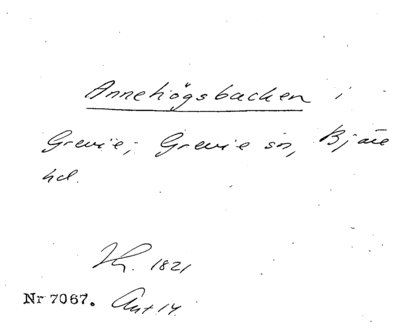 Annehögsbacken i
Grevie; Grevie sn, Bjäre
hd.
1821
Nr 7067. Ant 14.